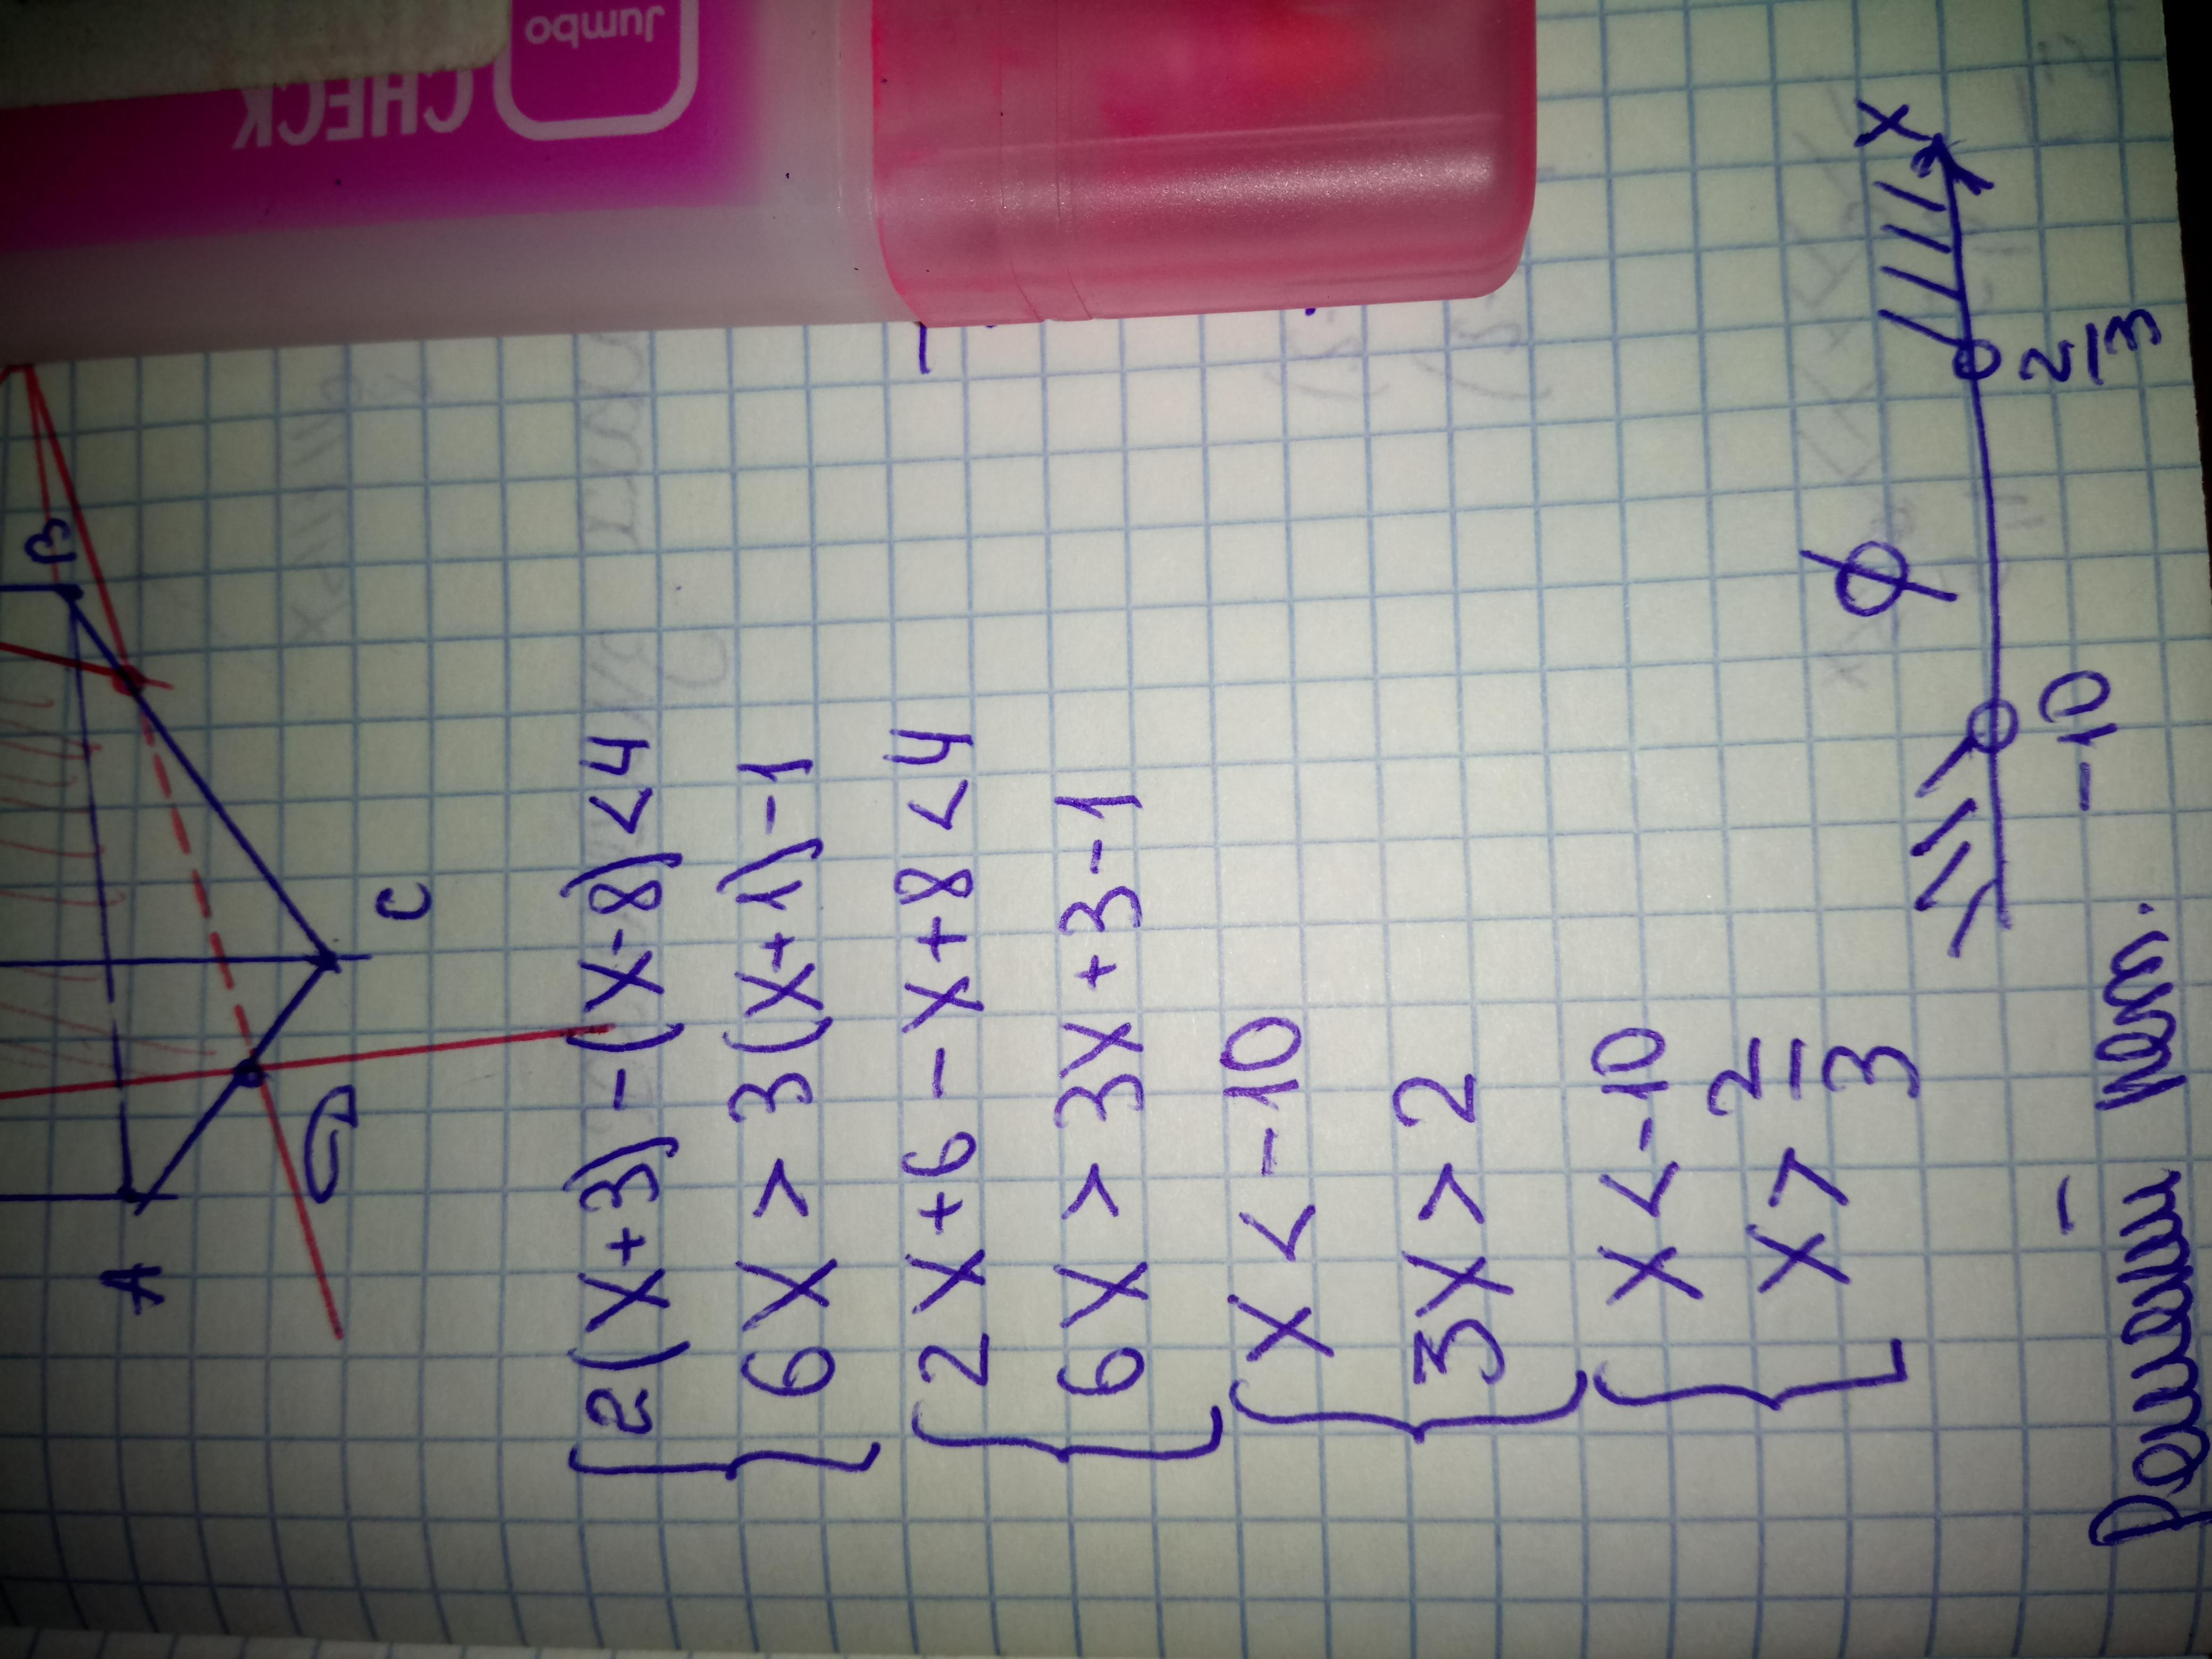 Jumbo
CHECK
A
B
C
D
2(x+3)-(x-8)<4
6x>3(x+1)-1
2x+6-x+8<4
6x>3x+3-1
x<-10
3x>2
x<-10
x>2/3
∅
x
-10
2/3
Решений нет.